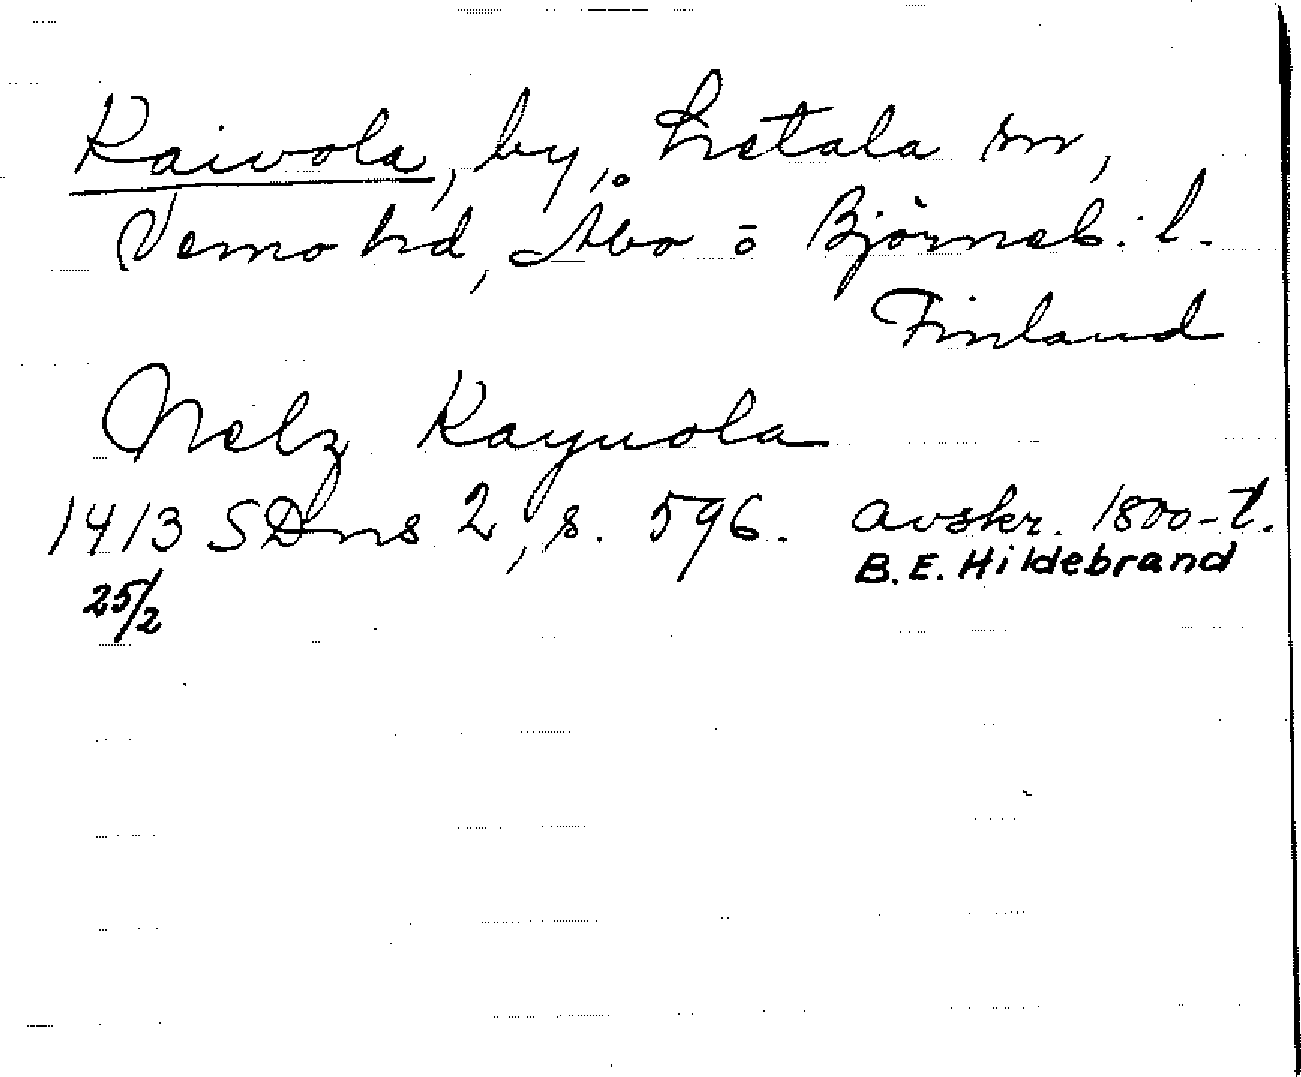 Kaivola, by, Letala sn,
Vemo hd, Åbo o Björneb. l.
Finland
Nelz Kayuola
1413 SDns 2, s. 596. avskr. 1800-t.
25/2 B.E. Hildebrand